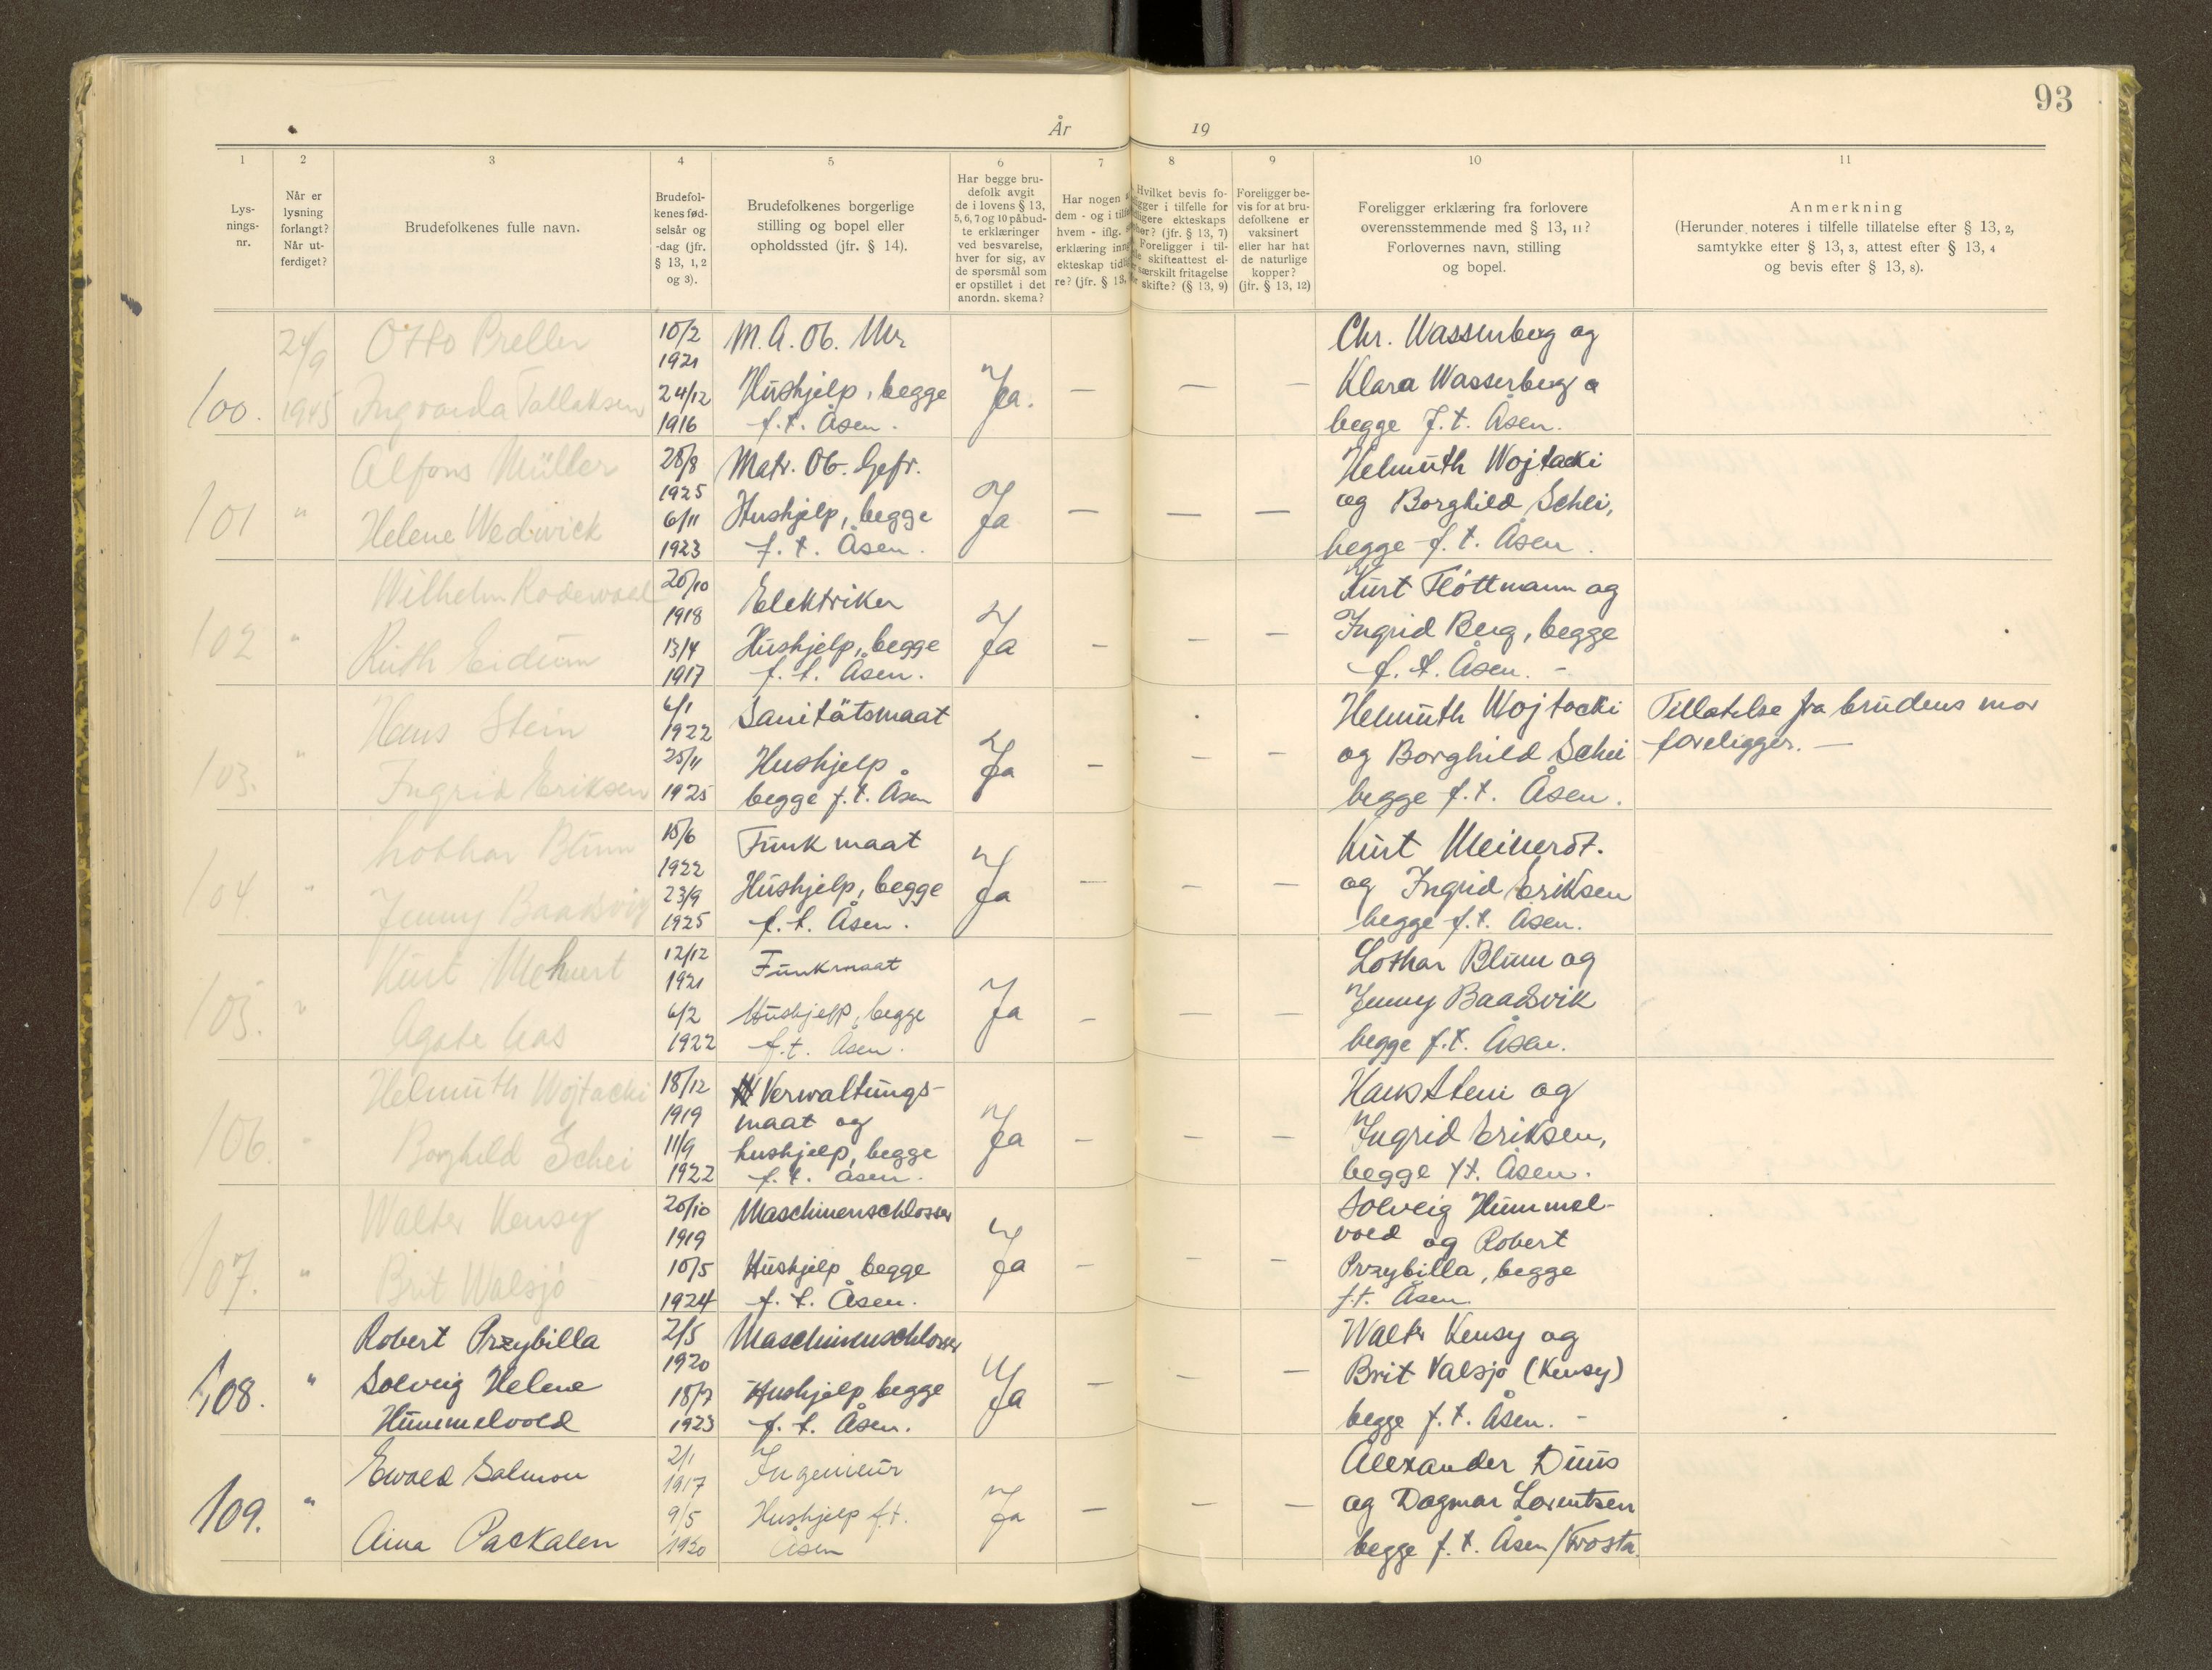 93
År 19
1
2
3
4
5
6
7
8
9
10
11
Lys-
nings-
nr.
Når er
lysning
forlangt?
Når ut-
ferdiget?
Brudefolkenes fulle navn.
Brudefol-
kenes fød-
selsår og
-dag (jfr.
§ 13, 1, 2
og 3).
Brudefolkenes borgerlige
stilling og bopel eller
opholdssted (jfr. § 14).
Har begge bru-
defolk avgit
de i lovens § 13,
5, 6, 7 og 10 påbud-
te erklæringer
ved besvarelse,
hver for sig, av
de spørsmål som
er opstillet i det
anordn. skema?
Har nogen
dem - og i
hvem - iflg.
erklæring
ekteskap
re? (jfr. § 13,
Hvilket bevis fo-
i tilfelle for
ekteskaps
(jfr. § 13, 7)
Foreligger i til-
skifteattest el-
særskilt fritagelse
skifte? (§ 13, 9)
Foreligger be-
vis for at bru-
defolkene er
vaksinert
eller har hat
de naturlige
kopper?
(jfr. § 13, 12)
Foreligger erklæring fra forlovere
overensstemmende med § 13, 11?
Forlovernes navn, stilling
og bopel.
Anmerkning
(Herunder noteres i tilfelle tillatelse efter § 13, 2,
samtykke efter § 13, 3, attest efter § 13, 4
og bevis efter § 13, 8).
100.
24/9
1945
Otto Preller
Ingvarda Tallaksen
10/2
1921
24/12
1916
M.A. Ob.
Hushjelp, begge
f.t. Åsen.
Ja.
—
—
—
Chr. Wassenberg og
Klara Wasserberg
begge f.t. Åsen.
101
"
Alfons Müller
Helene Wedwick
28/8
1925
6/11
1923
Matr. Ob. Gefr.
Hushjelp, begge
f.t. Åsen.
Ja
—
—
—
Helmuth Wojtacki
og Borghild Schei,
begge f.t. Åsen.
102
"
Wilhelm Rodewald
Ruth Eidum
20/10
1918
13/4
1917
Elektriker
Hushjelp, begge
f.t. Åsen.
Ja
-
-
-
Kurt Flöttmann og
Ingrid Berg, begge
f.t. Åsen. -
103.
"
Hans Stein
Ingrid Eriksen
6/1
1922
25/11
1925
Sanitätsmaat
Hushjelp
begge f.t. Åsen
Ja
-
-
-
Helmuth Wojtacki
og Borghild Schei
begge f.t. Åsen.
Tillatelse fra brudens mor
foreligger. —
104
"
Lothar Blum
Jenny Baadsvig
15/6
1922
23/9
1925
Funkmaat
Hushjelp, begge
f.t. Åsen.
Ja
-
-
-
Kurt
og Ingrid Eriksen
begge f.t. Åsen.
105.
"
Kurt
Agate
12/12
1921
6/2
1922
Funkmaat
Hushjelp, begge
f.t. Åsen.
Ja
-
-
-
Lothar Blum og
Jenny Baadsvik
begge f.t. Åsen.
106.
"
Helmuth Wojtacki
Borghild Schei
18/12
1919
11/9
1922
Verwaltungs-
maat og
hushjelp, begge
f.t. Åsen.
Ja
-
-
-
Hans Stein og
Ingrid Eriksen,
begge f.t. Åsen.
107.
"
Walter Kensy
Brit Walsjö
20/10
1919
10/5
1924
Maschinenschlosser
Hushjelp begge
f.t. Åsen.
Ja
-
-
-
Solveig Hummel-
vold og Robert
Przybilla, begge
f.t. Åsen.
108.
"
Robert Przybilla
Solveig Helene
Hummelvold
2/5
1920
18/7
1923
Maschinenschlosser
Hushjelp begge
f.t. Åsen.
Ja
-
-
-
Walter Kensy og
Brit Valsjö (Kensy)
begge f.t. Åsen. -
109.
"
Ewald Salmon
Aina Packalen
2/1
1917
9/5
1920
Ingenieur
Hushjelp f.t.
Åsen
Ja
—
—
—
Alexander Duus
og Dagmar Lorentsen
begge f.t. Åsen/Frosta.